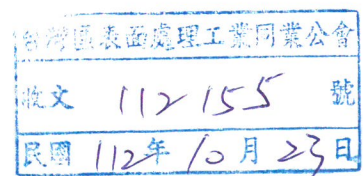 台灣區表面處理工業同業公會
收文 112155 號
民國 112年 10月 23日